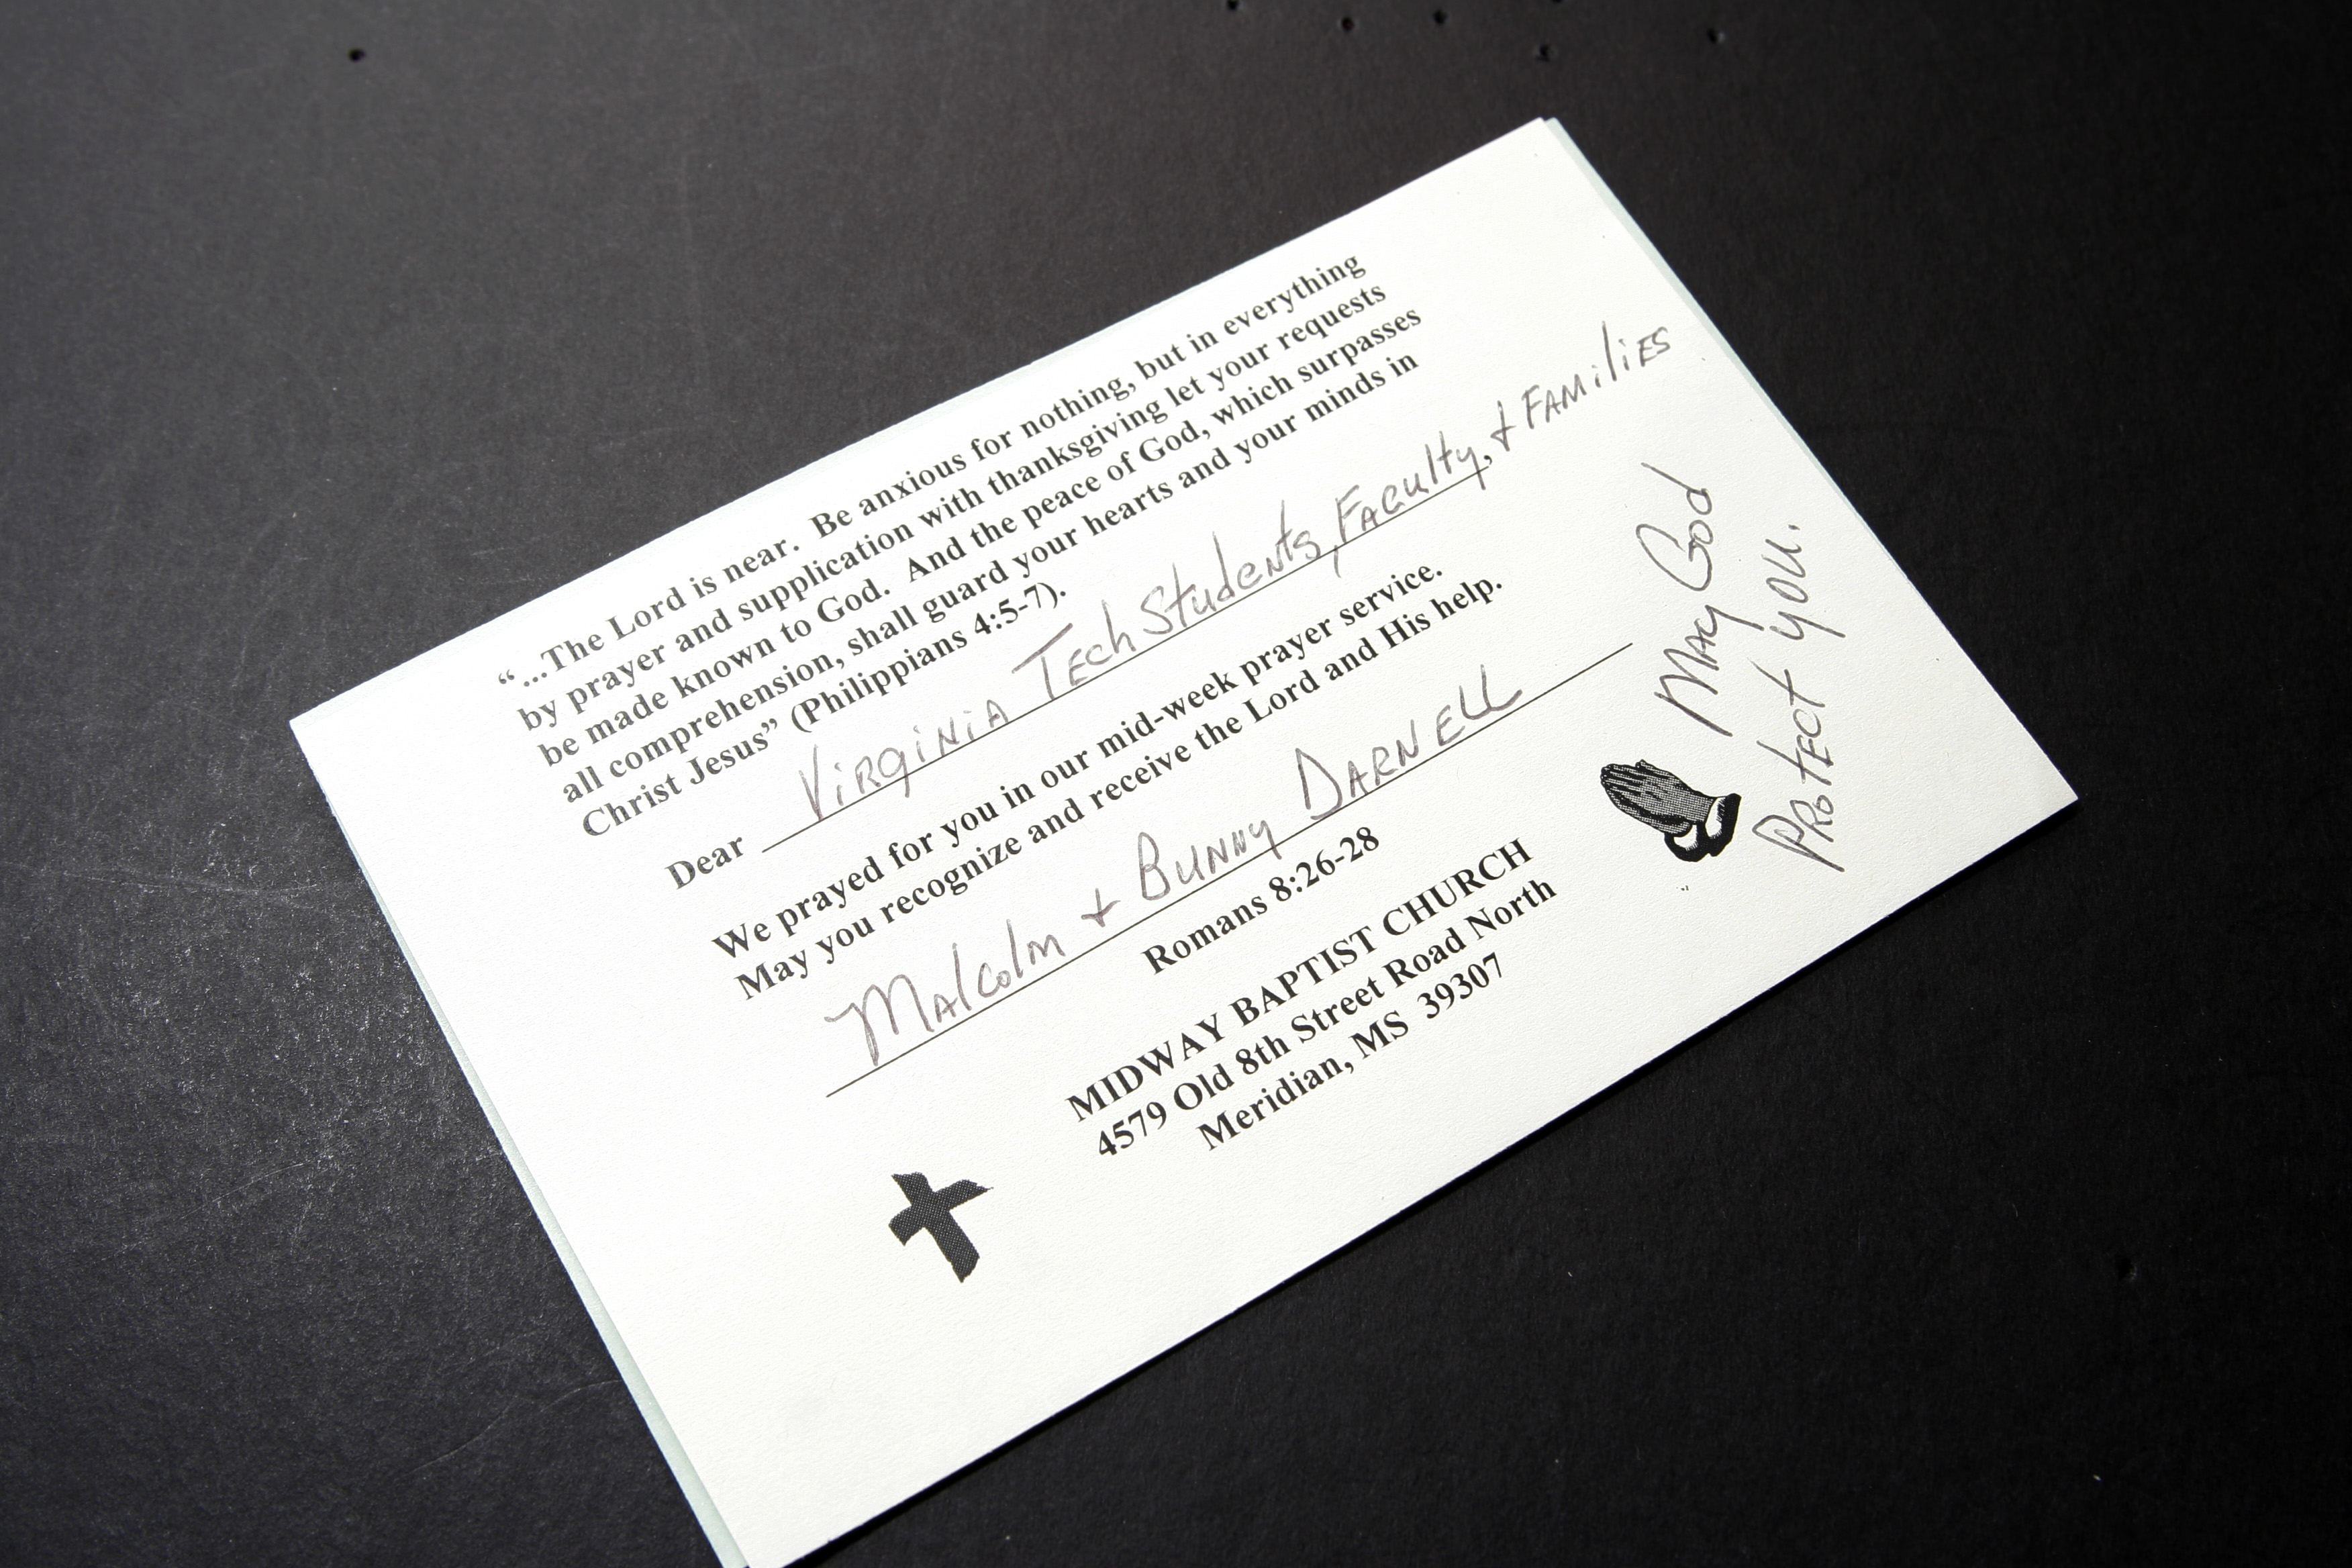 “...The Lord is near.  Be anxious for nothing, but in everything
by prayer and supplication with thanksgiving let your requests
be made known to God.  And the peace of God, which surpasses
all comprehension, shall guard your hearts and your minds in
Christ Jesus” (Philippians 4:5-7).
Dear Virginia Tech Students, Faculty, + Families
We prayed for you in our mid-week prayer service.
May you recognize and receive the Lord and His help.
Malcolm + Bunny Darnell
Romans 8:26-28
MIDWAY BAPTIST CHURCH
4579 Old 8th Street Road North
Meridian, MS  39307
May God
Protect you.